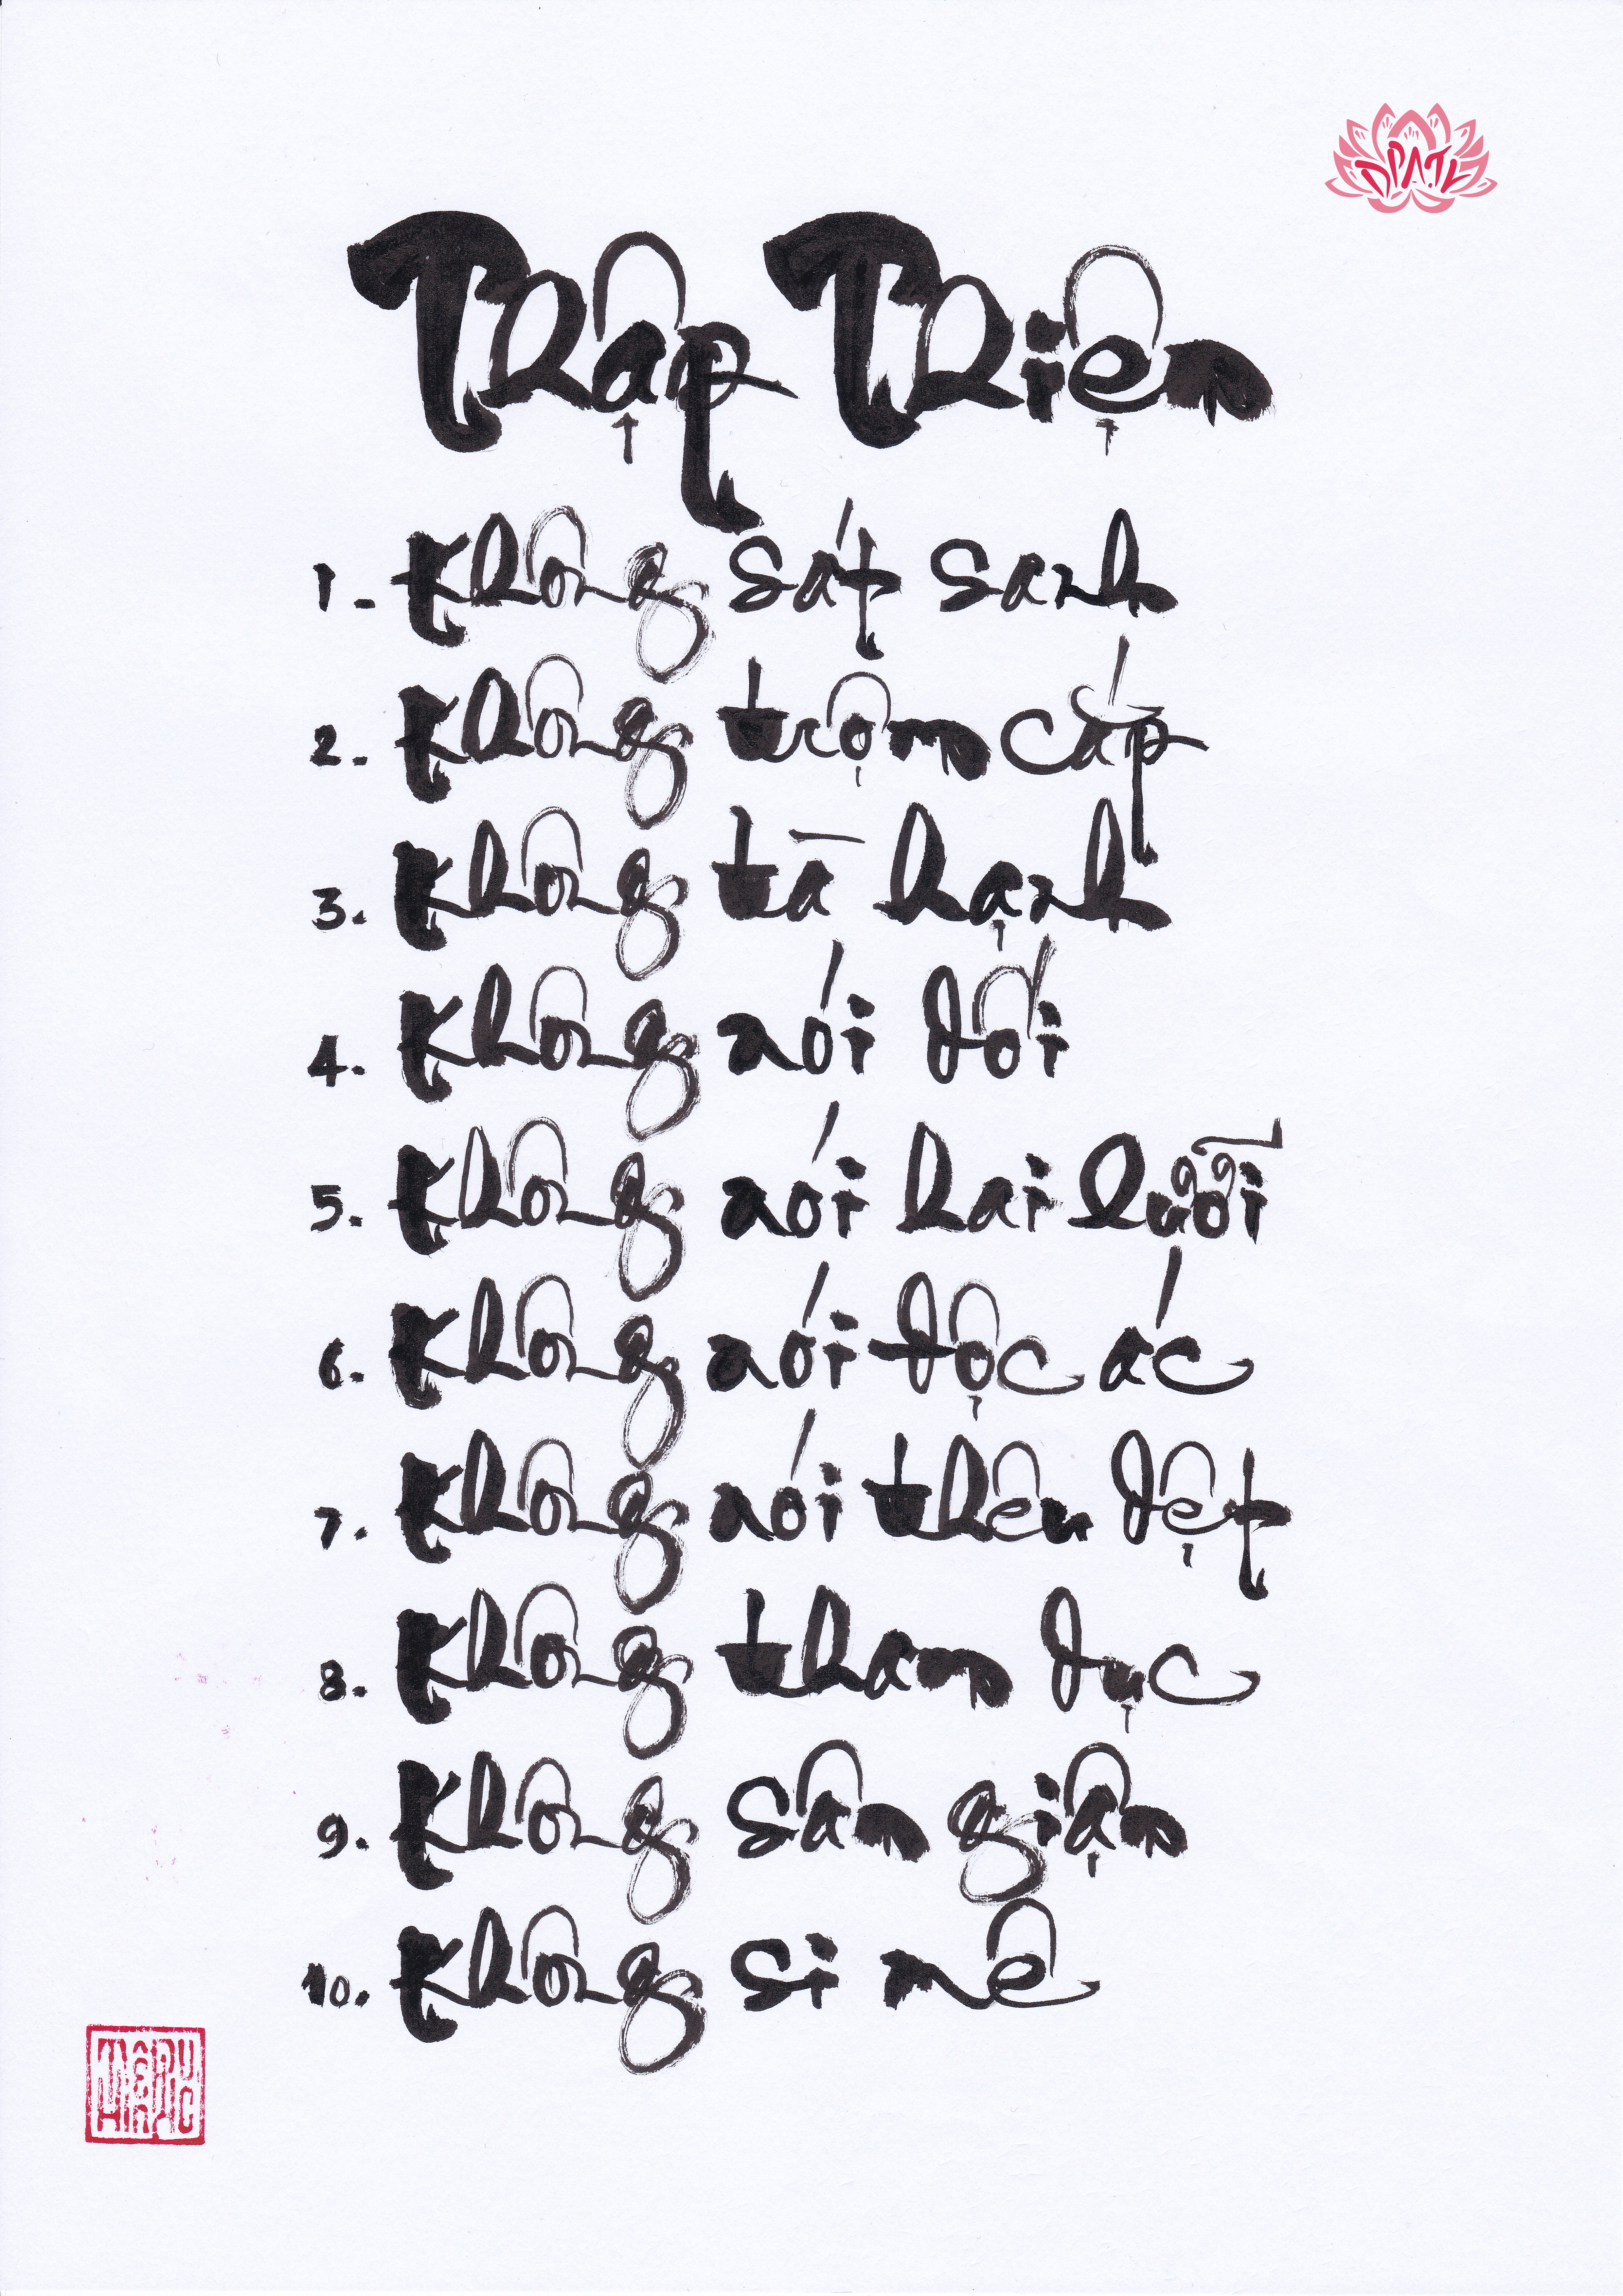 DPATL
Thập Thiện
1. Không sát sanh
2. Không trộm cắp
3. Không tà hạnh
4. Không nói dối
5. Không nói hai lưỡi
6. Không nói độc ác
7. Không nói thêu dệt
8. Không tham dục
9. Không sân giận
10. Không si mê